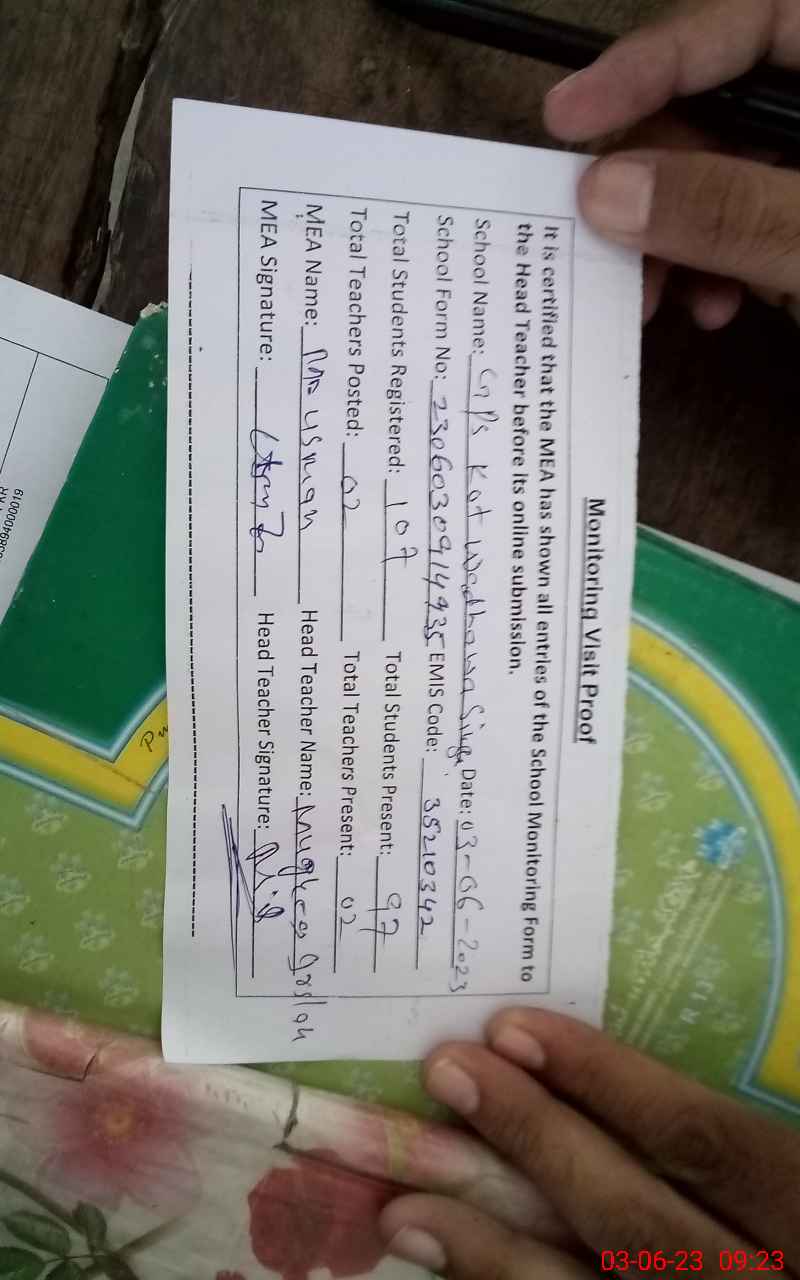 Monitoring Visit Proof
It is certified that the MEA has shown all entries of the School Monitoring Form to
the Head Teacher before its online submission.
School Name: GPS Kot Wadhawa Singh Date: 03-06-2023
School Form No: 2306030914935 EMIS Code: 35210342
Total Students Registered: 107 Total Students Present: 97
Total Teachers Posted: 02 Total Teachers Present: 02
MEA Name: M usman Head Teacher Name: Mughees Arslan
MEA Signature: Head Teacher Signature:
R 13
03-06-23 09:23